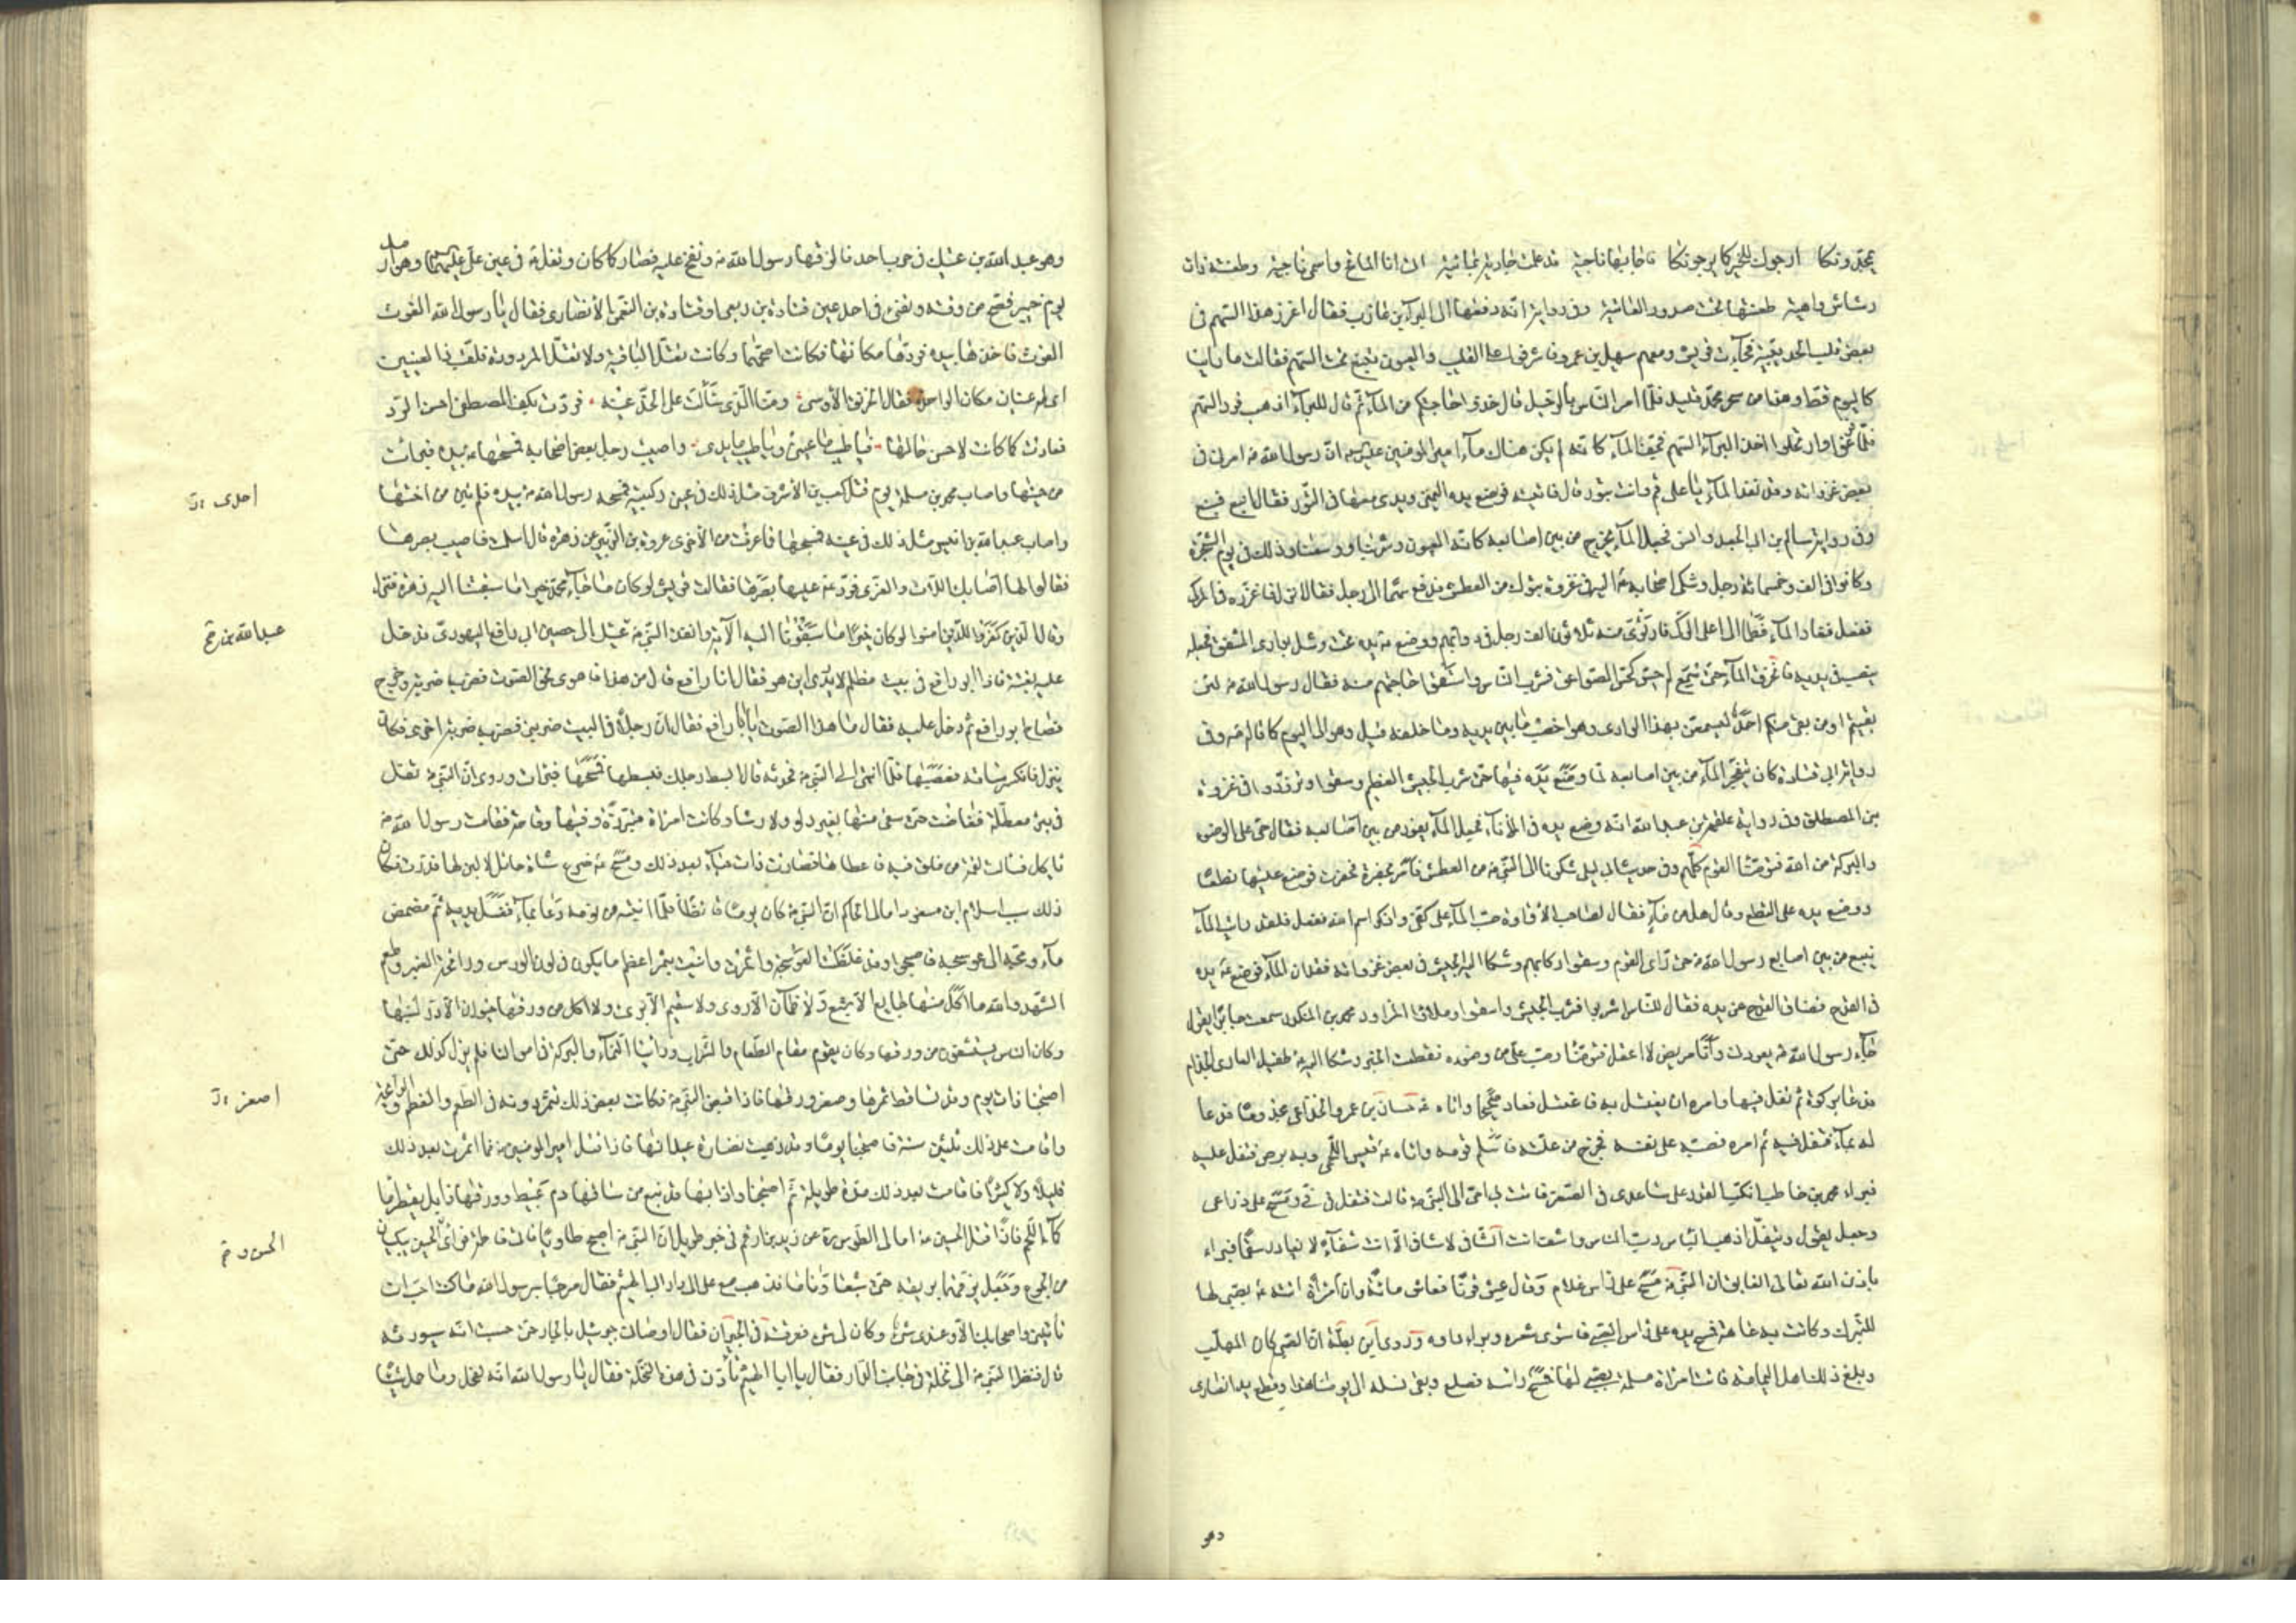 يمجدونكا ارجوك للخير كما يرجونكا فاجابها ناجية قد علمت جارية يمانية انى انا المائح واسمى ناجية وطعنة ذات
رشاش واهية طعنتها تحت صدور العاتية وفى رواية انه دفعها الى البراء بن عازب فقال اغرز هذا السهم فى
بعض قليب الحديبية فجاءت قريش ومعهم سهيل بن عمرو فاشرفوا على القليب والعيون تنبع تحت السهم فقالت ما راينا
كاليوم قط وهذا من سحر محمد قليل فلما امر الناس بالرحيل قال خذوا حاجتكم من الماء ثم قال للبراء اذهب فرد السهم
فلما فرغوا وارتحلوا اخذ البراء السهم فجف الماء كانه لم يكن هناك ماء امير المؤمنين عليه السلام ان رسول الله ص امرنى فى
بعض غزواته وقد نفد الماء يا على قم وائت بتور قال فاتيته فوضع يده اليمنى ويدى معها فى التور فقال انبع فنبع
وفى رواية سالم بن ابى الجعد وانس فجعل الماء يخرج من بين اصابعه كانه العيون فشربنا ووسعنا وذلك فى يوم الشجرة
وكانوا فى الف وخمسمائة رجل وشكى اصحابه ص اليه فى غزوة تبوك من العطش فدفع سهما الى رجل فقال انزل فاغرزه فى الركى
ففعل ففار الماء فطما الى اعلى الركى فارتوى منه ثلاثون الف رجل فى دوابهم ووضع ص يده تحت وشل بوادى المشقق فجعل
ينصب فى يديه فانخرق الماء حتى سمع له حس كحس الصواعق فشرب الناس واستقوا حاجتهم منه فقال رسول الله ص لئن
بقيتم او من بقى منكم احد ليسمعن بهذا الوادى وهو اخصب ما بين يديه وما خلفه قيل وهو الى اليوم كما قاله ص وفى
رواية ابى قتادة كان يتفجر الماء من بين اصابعه لما وضع يده فيها حتى شرب الجيش العظيم وسقوا وتزودوا فى غزوة
بنى المصطلق وفى رواية علقمة بن عبد الله انه وضع يده فى الاناء فجعل الماء يفور من بين اصابعه فقال حى على الوضوء
والبركة من الله فتوضأ القوم كلهم وفى حديث ابى ليلى شكونا الى النبى ص من العطش فامر بحفرة فحفرت فوضع عليها نطعا
ووضع يده على النطع وقال هل من ماء فقال لصاحب الاداوة صب الماء على كفى واذكر اسم الله ففعل فلقد رايت الماء
ينبع من بين اصابع رسول الله ص حتى روى القوم وسقوا ركابهم وشكا اليه الجيش فى بعض غزواته فقدان الماء فوضع ص يده
فى القدح فضاق القدح عن يده فقال للناس اشربوا فشرب الجيش واسقوا وملاوا المزاود محمد بن المنكدر سمعت جابرا يقول
جاء رسول الله ص يعودنى وانا مريض لا اعقل فتوضأ وصب على من وضوئه فعقلت الخبر وشكا اليه ص طفيل العامرى الجذام
فدعا بركوة ثم تفل فيها وامره ان يغتسل به فاغتسل فعاد صحيحا واتاه ص حسان بن عمرو الخزاعى مجذوما فدعا
له بماء فتفل فيه ثم امره فصبه على نفسه فخرج من علته فاسلم قومه واتاه ص قيس اللخمى وبه برص فتفل عليه
فبراء محمد بن خاطب انكب القدر على ساعدى فى الصغر فاتت بى امى الى النبى ص قالت فتفل فى فى ومسح على ذراعى
وجعل يقول ويتفل اذهب الباس رب الناس واشف انت الشافى لا شافى الا انت شفاء لا يغادر سقما فبراء
باذن الله تعالى الفايق ان النبى ص مسح على راس غلام وقال عش قرنا فعاش مائة وان امراة اتته ص بصبى لها
للتبرك وكانت به عاهة فمسح يده على راس الصبى فاستوى شعره وبراء داءه وروى ابن بطة ان الصبى كان المهلب
وبلغ ذلك اهل اليمامة فاتت امراة مسيلمة بصبى لها فمسح راسه فصلع وبقى نسله الى يومنا هذا وقطع يد انصارى
وهو
وهو عبد الله بن عتيك فى حرب احد فالزقها رسول الله ص ونفخ عليه فصار كما كان وتفل ص فى عين على عليه السلام وهو ارمد
يوم خيبر فصح من وقته وفقئ فى احد عين قتادة بن ربعى او قتادة بن النعمان الانصارى فقال يا رسول الله الغوث
الغوث فاخذها بيده فردها مكانها فكانت اصحهما وكانت تعتل الباقية ولا تعتل المردودة فلقب ذا العينين
اى له عينان مكان الواحدة فقال الخرنق الاوسى ومنا الذى سالت على الخد عينه فردت بكف المصطفى احسن الرد
فعادت كما كانت لاحسن حالها فيا طيب ما عينى ويا طيب ما يدى واصيبت رجل بعض اصحابه فمسحها ص بيده فبرات
من حينها واصاب محمد بن مسلمة يوم قتل كعب بن الاشرف مثل ذلك فى عين ركبتيه فمسحه رسول الله ص بيده فلم تبن من اختها
احدى
واصاب عبد الله بن انيس مثل ذلك فى عينه فمسحها فما عرفت من الاخرى عروة بن الزبير عن زهرة قال اسلمت فاصيب بصرها
فقالوا لها اصابك اللات والعزى فرد ص عليها بصرها فقالت قريش لو كان ما جاء محمد خيرا ما سبقتنا اليه زهرة فنزل
وقال الذين كفروا للذين امنوا لو كان خيرا ما سبقونا اليه الآية وانفذ النبى ص عتيك الى حصن ابى رافع اليهودى فدخل
عبد الله بن
عليه بغتة فاذا ابو رافع فى بيت مظلم لا يدرى اين هو فقال ابا رافع قال من هذا فاهوى نحو الصوت فضربه ضربة وخرج
فصاح ابو رافع ثم دخل عليه فقال ما هذا الصوت يا ابا رافع فقال ان رجلا فى البيت ضربنى فضربه ضربة اخرى فكان
ينزل فانكسر ساقه فعصبها فلما انتهى الى النبى ص فحدثه قال ابسط رجلك فبسطها فمسحها فبرات وروى ان النبى ص تفل
فى بئر معطلة ففاضت حتى سقى منها بغير دلو ولا رشا وكانت امراة متبرزة وفيها وقاحة فقامت رسول الله ص
ياكل فسالت لقمة من فلق فيه فاعطاها فصارت ذات حياء بعد ذلك ومسح ص ضرع شاة حائل لا لبن لها فدرت فكان
ذلك سبب اسلام ابن مسعود امالى الحاكم ان النبى ص كان يوما قائظا فلما انتبه من نومه دعا بماء فغسل يديه ثم مضمض
ماء ومجه الى عوسجة فاصبحوا وقد غلظت العوسجة واثمرت واتيت بثمر اعظم ما يكون فى لون الورس ورائحة العنبر وطعم
الشهد والله ما اكل منها جايع الا شبع ولا ظمان الا روى ولا سقيم الا برئ ولا اكل من ورقها حيوان الا در لبنها
وكان الناس يستشفون من ورقها وكان يقوم مقام الطعام والشراب وراينا النماء والبركة فى اموالنا فلم يزل كذلك حتى
اصبحنا ذات يوم وقد تساقط ثمرها وصغر ورقها فاذا قبض النبى ص فكانت بعد ذلك تثمر دونه فى الطعم والعظم والرائحة
اصفر
واقامت على ذلك ثلثين سنة فاصبحنا يوما وقد ذهبت نضارة عيدانها فاذا قتل امير المؤمنين ع فما اثمرت بعد ذلك
قليلا ولا كثيرا فاقامت بعد ذلك مدة طويلة ثم اصبحنا واذا بها قد نبع من ساقها دم عبيط وورقها ذابل يقطر ماء
كماء اللحم فاذا قتل الحسين ع امالى الطوسى ره عن زيد بن ارقم فى خبر طويل ان النبى ص اصبح طاويا فاتى فاطمة فراى الحسين يبكيان
الحسن و
من الجوع وجعل يزقهما بريقه حتى شبعا وناما فذهب مع على الى دار ابى الهيثم فقال مرحبا برسول الله ما كنت احب ان
تاتينى واصحابك الا وعندى شئ وكان لى شئ ففرقته فى الجيران فقال اوصانى جبرئيل بالجار حتى حسبت انه سيورثه
قال فنظر النبى ص الى نخلة فى جانب الدار فقال يا ابا الهيثم تاذن فى هذه النخلة فقال يا رسول الله انه لفحل وما حمل شيئا